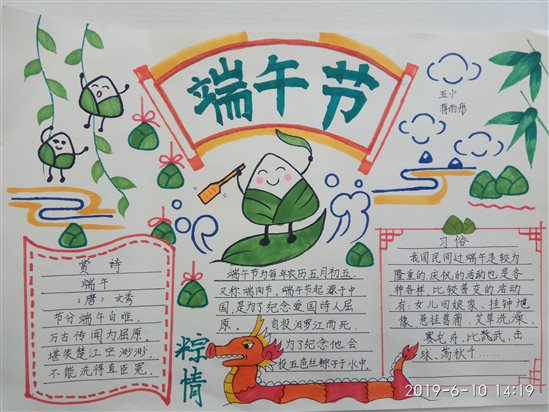 端午节
五小
赏诗
端午
（唐）文秀
节分端午自谁，
万古传闻为屈原。
堪笑楚江空渺渺
不能洗得直臣冤。
粽情
端午节为每年农历五月初五，
又称端阳节，端午节起源于中
国，是为了纪念爱国诗人屈
原，自投汨罗江而死，
为了纪念他会
投五色丝粽子于水中，
习俗
我国民间过端午是较为
隆重的，庆祝的活动也是各
种各样，比较普变的活动
有：女儿回娘家、挂钟馗
像、悬挂菖蒲、艾草洗澡、
赛龙舟、比武、击
球、荡秋千……
2019-6-10 14:19